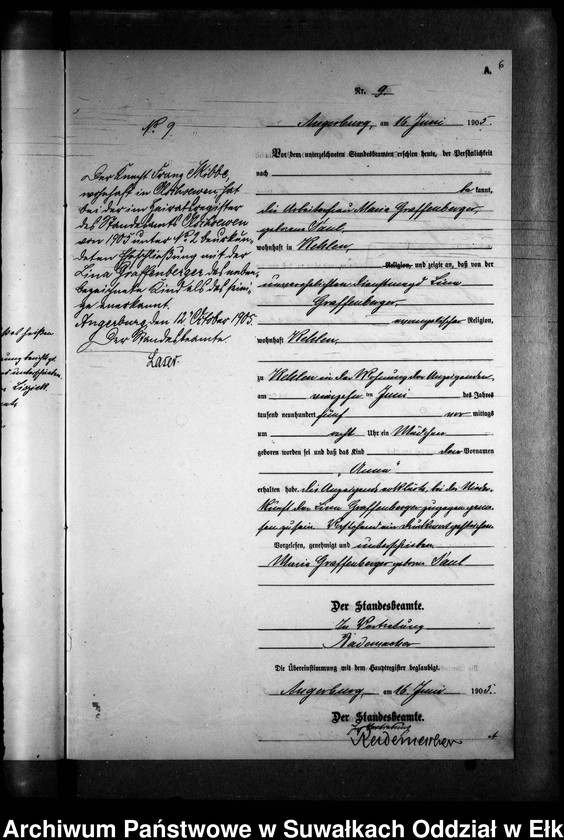 6
A.
Nr. 9.
No 9.
Angerburg, am 16. Juni 1905.
Vor dem unterzeichneten Standesbeamten erschien heute, der Persönlichkeit
nach
be kannt,
die Arbeiterfrau Maria Graffenberger,
geborene Saul,
wohnhaft in Kehlen,
Religion, und zeigte an, daß von der
unverehelichten Dienstmagd Lina
Graffenberger,
evangelischer Religion,
wohnhaft Kehlen,
zu Kehlen in der Wohnung der Anzeigenden,
am vierzehn ten Juni des Jahres
tausend neunhundert fünf vor mittags
um acht Uhr ein Mädchen
geboren worden sei und daß das Kind den Vornamen
„Anna“
erhalten habe. die Anzeigende erklärte, bei der Nieder-
kunft der Lina Graffenberger zugegen gewe-
sen zu sein. Vorstehend ein Druckwort gestrichen.
Vorgelesen, genehmigt und unterschrieben
Maria Graffenberger geborene Saul
Der Standesbeamte.
In Vertretung
Rademacher
Die Übereinstimmung mit dem Hauptregister beglaubigt.
Angerburg, am 16. Juni 1905.
Der Standesbeamte.
In Vertretung
Rademacher
Der Knecht Franz
wohnhaft in hat
bei der im Heiratsregister
des Standesamts
von 1905 unter No 2 beurkun-
deten Eheschließung mit der
Lina Graffenberger das neben-
bezeichnete Kind als das seini-
ge anerkannt.
Angerburg, den 12. October 1905.
Der Standesbeamte.
Laser.
Archiwum Państwowe w Suwałkach Oddział w Ełk